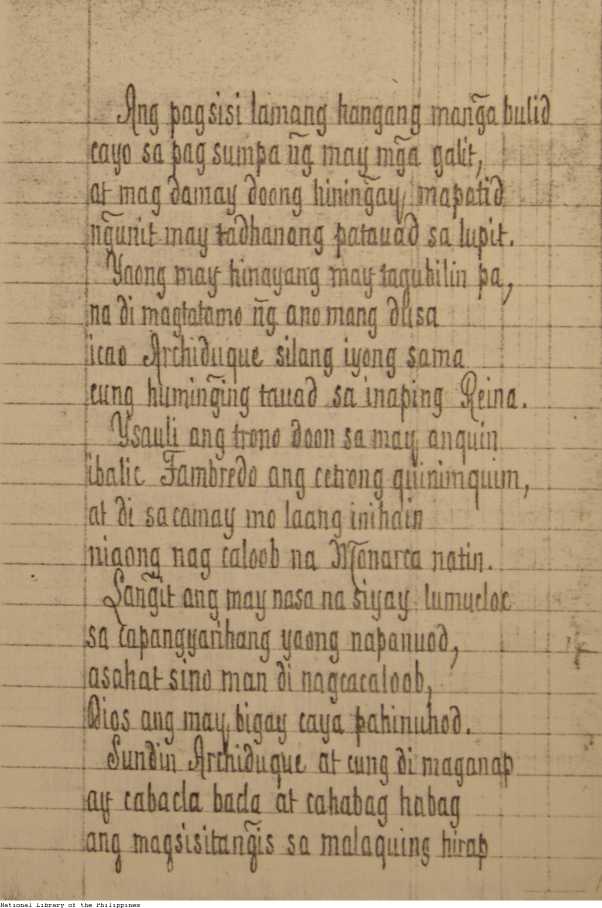 Ang pagsisi lamang hangang man̄ga bulid
cayo sa pag sumpa n̄g may mg̃a galit,
at mag damay doong hinin̄gay, mapatid
ng̃unit may tadhanang patauad sa lupit.
Yaong may hinayang may tagubilin pa,
na di magtatamo n̄g ano mang dusa
icao Archiduque silang iyong sama
cung humin̄ging tauad sa inaping Reina.
Ysauli ang trono doon sa may anquin
ibalic Fambredo ang cetrong quinimquim,
at di sa camay mo laang inihain
niaong nag caloob na Monarca natin.
Lan̄git ang may nasa na siyay lumucloc
sa capangyarihang yaong napanuod,
asahat sino man di nagcacaloob,
Dios ang may bigay caya pahinuhod.
Sundin Archiduque at cung di maganap
ay cabacla bacla at cahabag habag
ang magsisitan̄gis sa malaquing hirap
National Library of the Philippines